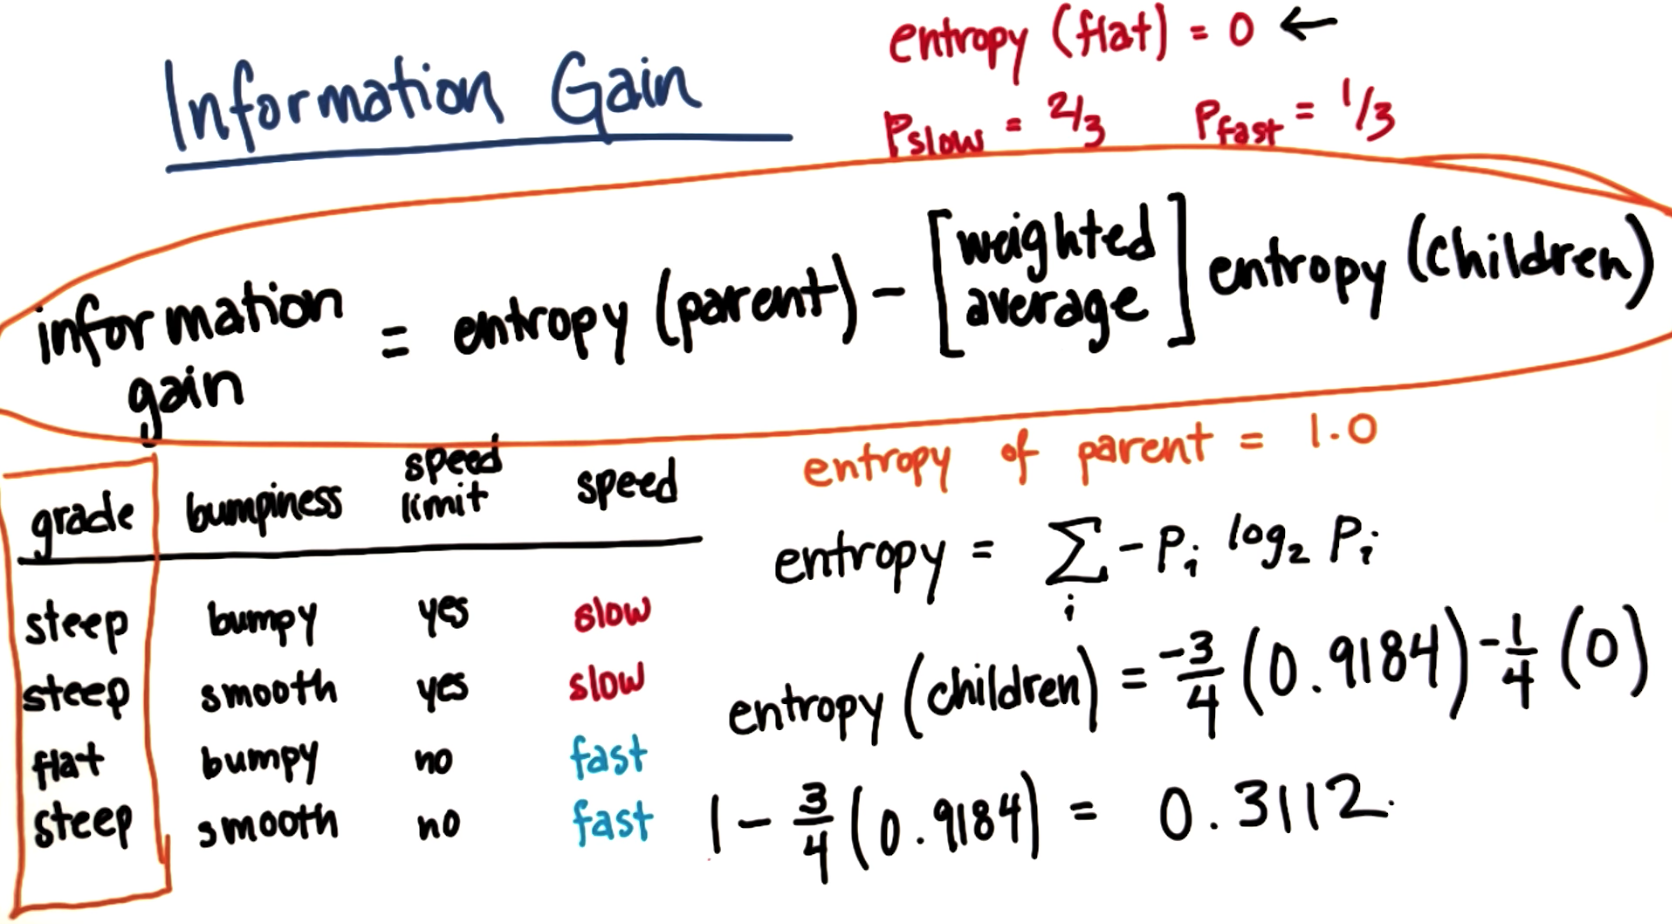 Information Gain
entropy (flat) = 0 ←
Pslow = 2/3 Pfast = 1/3
information gain = entropy (parent) - [weighted average] entropy (children)
entropy of parent = 1.0
grade bumpiness speed limit speed
steep bumpy yes slow
steep smooth yes slow
flat bumpy no fast
steep smooth no fast
entropy = Σi -Pi log2 Pi
entropy (children) = -3/4 (0.9184) - 1/4 (0)
1 - 3/4 (0.9184) = 0.3112